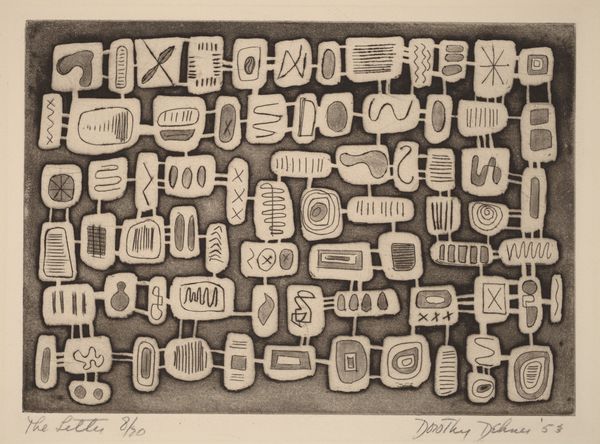 The Letter 8/20
Dorothy Dehner '53